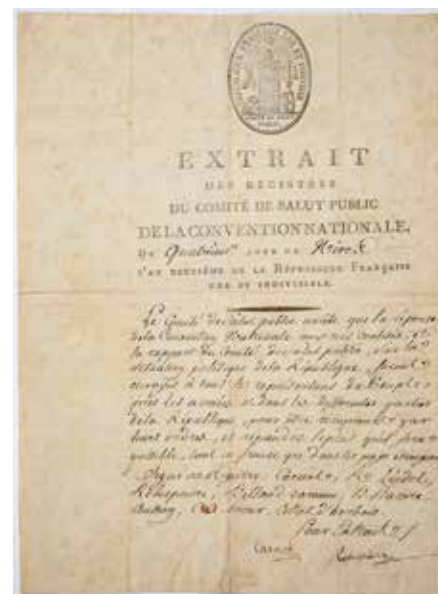 EXTRAIT
DES REGISTRES
DU COMITÉ DE SALUT PUBLIC
DE LA CONVENTION NATIONALE,
Du Quatrième jour de Nivose
L'AN DEUXIÈME DE LA RÉPUBLIQUE FRANÇAISE
UNE ET INDIVISIBLE.
Le Comité de salut public arrête que la réponse
de la Convention Nationale aux rois coalisés, et
le rapport du Comité de salut public, sur la
situation politique de la République, seront
envoyés à tous les représentans du Peuple
près les armées et dans les différentes parties
de la République, pour être réimprimés par
leurs ordres, et répandus le plus qu'il sera
possible, tant en france que dans les pays
Signé au registre, Carnot, R. Lindet,
Robespierre, Billaud varenne, B. Barère
Collot d'herbois
Pour Extrait
Carnot